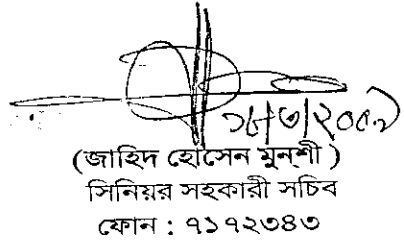 ১৮/৩/২০০৯
(জাহিদ হোসেন মুনশী )
সিনিয়র সহকারী সচিব
ফোন : ৭১৭২৩৪৩